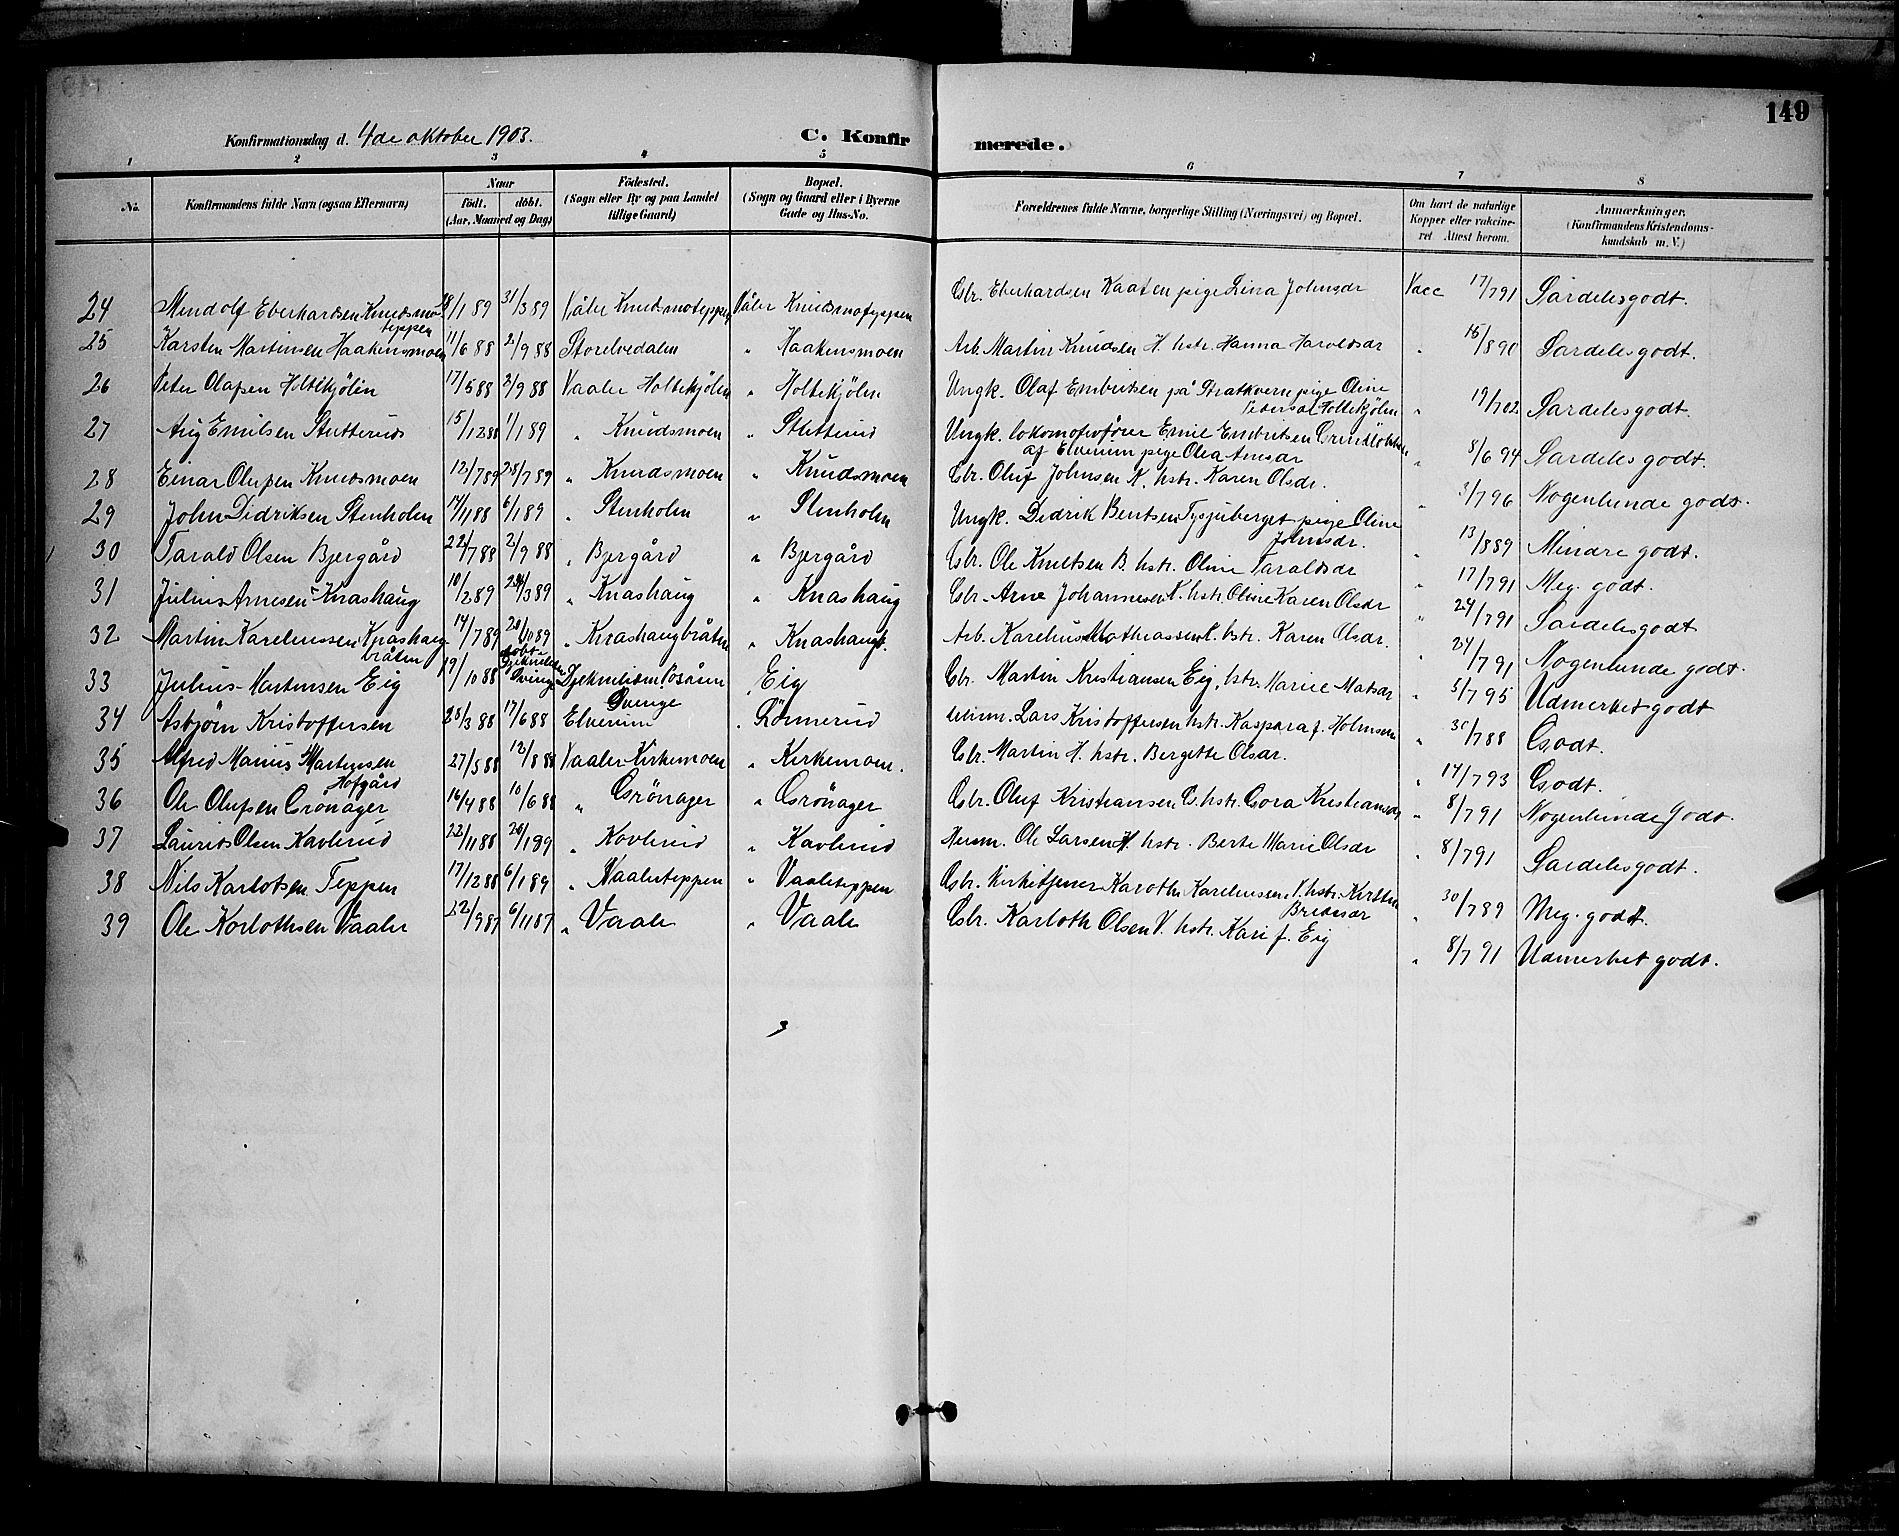 149
Konfirmationsdag d. 4de oktober 1903. C. Konfirmerede.
1 2 3 4 5 6 7 8
No. Konfirmandens fulde Navn (ogsaa Efternavn) Naar födt. döbt. (Aar, Maaned og Dag) Födested. (Sogn eller By og paa Landet tillige Gaard) Bopæl. (Sogn og Gaard eller i Byerne Gade og Hus-No. Forældrenes fulde Navne, borgerlige Stilling (Næringsvei) og Bopæl. Om havt de naturlige Kopper eller vakcineret Attest herom. Anmærkninger. (Konfirmandens Kristendomskundskab m. V.)
24 Mindolf Eberhardsen Knudsmoteppen 28/1 89 31/3 89 Våler Knudsmoteppen Våler Knudsmoteppen Gbr. Eberhardsen Kaaten pige Lina Johnsdr Vacc 17/7 91 Særdeles godt.
25 Karsten Martinsen Haakensmoen 11/6 88 2/9 88 Storelvedalen " Haakensmoen Arb. Martin Knudsen H. hstr. Hanna Haroldsdr " 18/8 90 Særdeles godt.
26 Peter Olafsen Holtekjölen 17/5 88 2/9 88 Vaaler Holtekjölen " Holtekjölen Ungk. Olaf Embretsen på pige Oline Pedersdr Holtekjölen " 19/7 02 Særdeles godt.
27 Aug Emilsen Stutterud 15/12 88 1/1 89 " Knudsmoen " Stutterud Ungk. lokomotivförer Emil Embretsen af Elverum pige Olea Arnesdr " 8/6 94 Særdeles godt.
28 Einar Olufsen Knudsmoen 12/7 89 28/7 89 " Knudsmoen " Knudsmoen Gbr. Oluf Johnsen K. hstr. Karen Olsdr. " 3/7 96 Nogenlunde godt.
29 John Didriksen Stenholen 14/11 88 6/1 89 " Stenholen " Stenholen Ungk. Didrik Bentsen Tysjuberget pige Oline Johnsdr. " 13/8 89 Mindre godt.
30 Tarald Olsen Bjergård 22/7 88 2/9 88 " Bjergård " Bjergård Gbr. Ole Knutsen B. hstr. Oline Taraldsdr " 17/7 91 Meg. godt.
31 Julius Arnesen Knashaug 10/2 89 24/3 89 " Knashaug " Knashaug Gbr. Arne Johannesen K. hstr. Oline Karen Olsdr " 24/7 91 Særdeles godt
32 Martin Kareliussen Knashaugbråten 14/7 89 20/10 89 " Knashaugbråten " Knashaug. Arb. Karelius Mathiassen K. hstr. Karen Olsdr. " 24/7 91 Nogenlunde godt.
33 Julius Martinsen Eig 19/10 88 döbt i Sverige Sverige " Eig Gbr. Martin Kristiansen Eig, hstr. Marie Matsdr " 5/7 95 Udmerket godt
34 Asbjörn Kristoffersen 28/3 88 17/6 88 Elverum " Lömmerud Lars Kristoffersen hstr. Kaspara f. Holmsen " 30/7 88 Godt.
35 Alfred Marius Martinsen Hofgård 27/5 88 12/8 88 Vaaler Kirkemoen " Kirkemoen. Gbr. Martin H. hstr. Bergette Olsdr. " 14/7 93 Godt.
36 Ole Olufsen Grönager 14/4 88 10/6 88 " Grönager " Grönager Gbr. Oluf Kristiansen G. hstr. Gora Kristiansdr " 8/7 91 Nogenlunde Godt.
37 Laurits Olsen Kavlerud 22/11 88 20/1 89 " Kavlerud " Kavlerud Husm. Ole Larsen K. hstr. Berte Marie Olsdr " 8/7 91 Særdeles godt.
38 Nils Karlotsen Teppen 17/12 88 6/1 89 " Vaalerteppen " Vaalerteppen Gbr. Kirketjener Karoth Kareliussen V. hstr. Kirsten Bredesdr " 30/7 89 Meg. godt.
39 Ole Karlothsen Vaaler 22/9 87 6/11 87 " Vaaler " Vaaler Gbr. Karloth Olsen V. hstr. Kari f. Eig " 8/7 91 Udmerket godt.